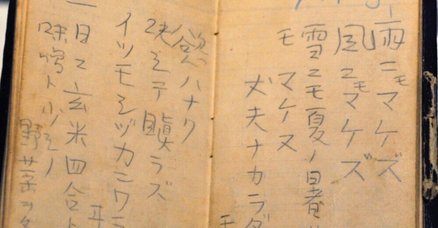 雨ニモマケズ
風ニモマケズ
雪ニモ夏ノ暑サ
モマケヌ
丈夫ナカラダ
モ
慾ハナク
決シテ瞋ラズ
イツモシヅカニワラ
一日ニ玄米四合ト
味噌ト少シノ
野菜ヲタ